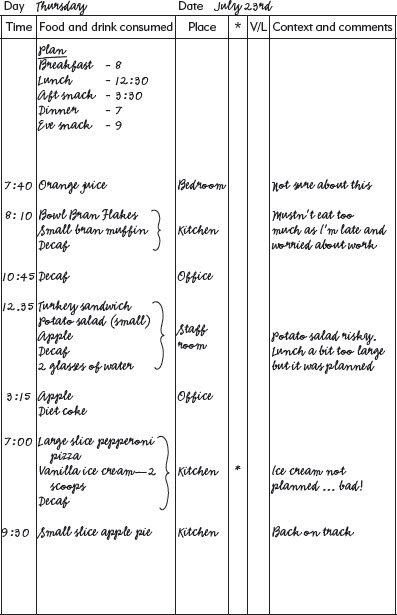 Day Thursday Date July 23rd
Time Food and drink consumed Place * V/L Context and comments
Plan
Breakfast - 8
Lunch - 12:30
Aft snack - 3:30
Dinner - 7
Eve snack - 9
7:40 Orange juice Bedroom Not sure about this
8:10 Bowl Bran Flakes Mustn't eat too
Small bran muffin Kitchen much as I'm late and
Decaf worried about work
10:45 Decaf Office
12.35 Turkey sandwich
Potato salad (small) Staff
Apple room Potato salad risky.
Decaf Lunch a bit too large
2 glasses of water but it was planned
3:15 Apple Office
Diet coke
7:00 Large slice pepperoni
pizza
Vanilla ice cream—2 Kitchen * Ice cream not
scoops planned ... bad!
Decaf
9:30 Small slice apple pie Kitchen Back on track